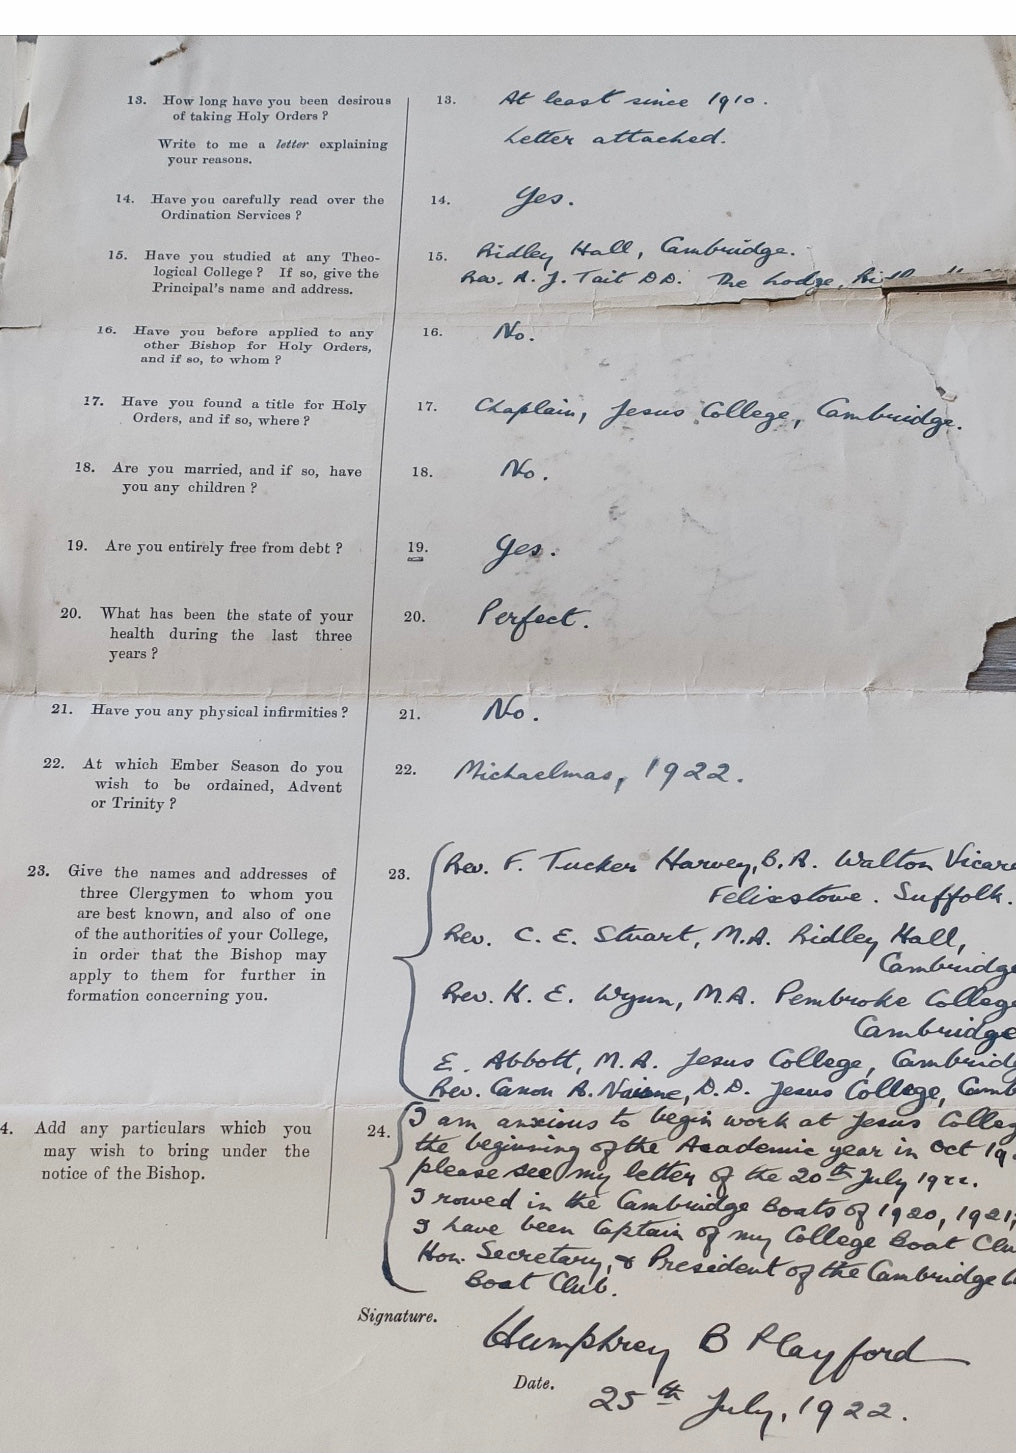 13. How long have you been desirous
of taking Holy Orders ?
Write to me a letter explaining
your reasons.
13. At least since 1910.
Letter attached.
14. Have you carefully read over the
Ordination Services ?
14. Yes.
15. Have you studied at any Theo-
logical College ? If so, give the
Principal's name and address.
15. Ridley Hall, Cambridge.
Rev. A. J. Tait D.D. The Lodge,
16. Have you before applied to any
other Bishop for Holy Orders,
and if so, to whom ?
16. No.
17. Have you found a title for Holy
Orders, and if so, where ?
17. Chaplain, Jesus College, Cambridge.
18. Are you married, and if so, have
you any children ?
18. No.
19. Are you entirely free from debt ?
19. Yes.
20. What has been the state of your
health during the last three
years ?
20. Perfect.
21. Have you any physical infirmities ?
21. No.
22. At which Ember Season do you
wish to be ordained, Advent
or Trinity ?
22. Michaelmas, 1922.
23. Give the names and addresses of
three Clergymen to whom you
are best known, and also of one
of the authorities of your College,
in order that the Bishop may
apply to them for further in
formation concerning you.
23. Rev. F. Tucker Harvey, B.A. Walton Vicar
Felixstowe. Suffolk.
Rev. C. E. Stuart, M.A. Ridley Hall,
Cambridge
Rev. H. E. Wynn, M.A. Pembroke College
Cambridge
E. Abbott, M.A. Jesus College, Cambridg
Rev. Canon A. Nairne, D.D. Jesus College, Camb
4. Add any particulars which you
may wish to bring under the
notice of the Bishop.
24. I am anxious to begin work at Jesus Colleg
the beginning of the Academic year in Oct 19
please see my letter of the 20th July 1922.
I rowed in the Cambridge Boats of 1920, 1921,
I have been Captain of my College Boat Clu
Hon. Secretary, & President of the Cambridge
Boat Club.
Signature.
Humphrey B Playford
Date.
25th July, 1922.